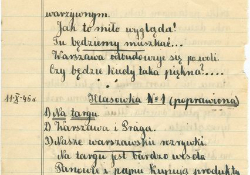 warzywnym.
Jak to miło wygląda!
Tu będziemy mieszkać...
Warszawa odbudowuje się powoli.
Czy będzie kiedy taka piękna!....
11 X 46 r.
Klasówka Nº 1 (poprawiona)
1) Na targu
2) Warszawa i Praga.
3) Nasze warszawskie rozrywki.
Na targu jest bardzo wesoło
Panowie z
produkta